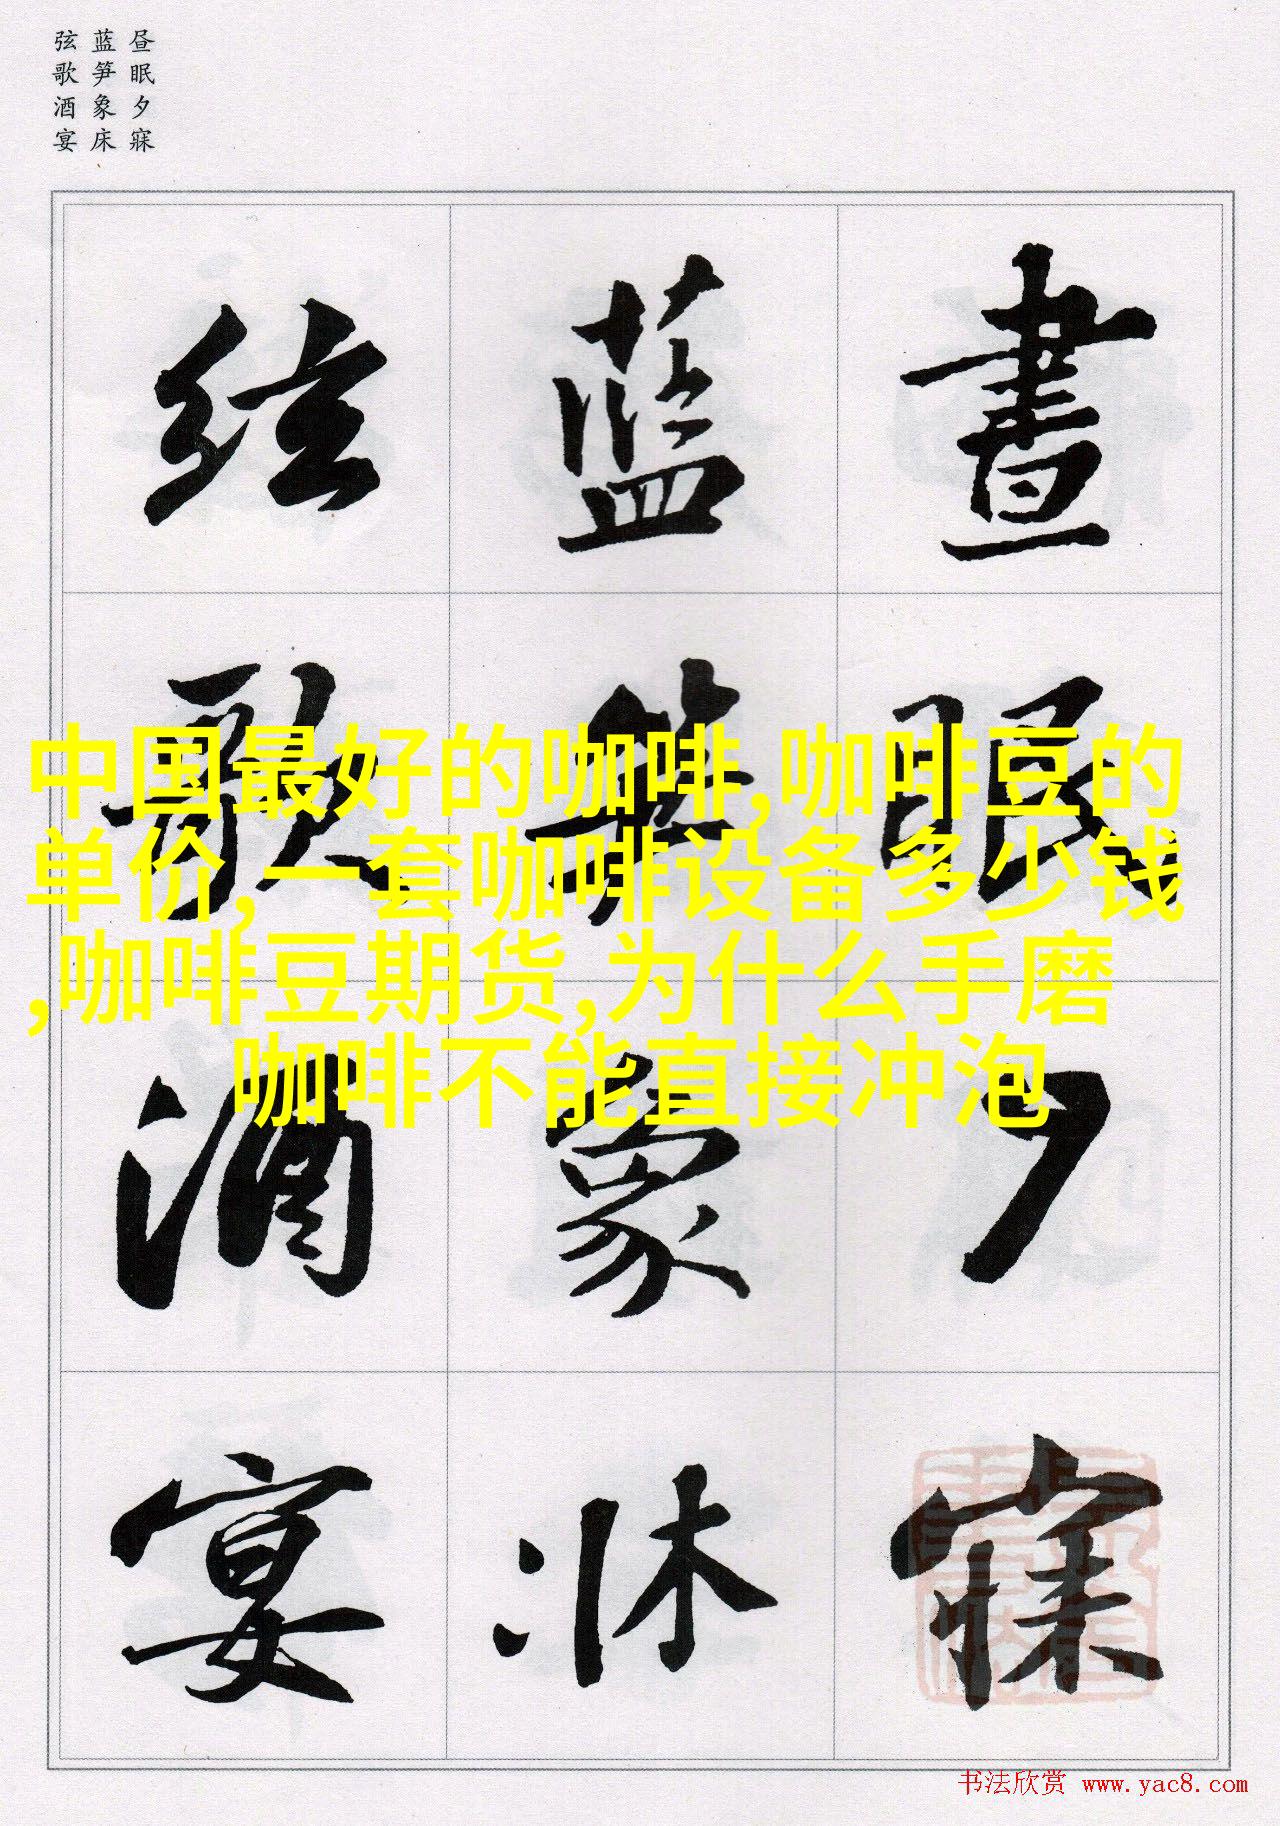 昼眠夕寐
蓝笋象床
弦歌酒宴
晝眠夕寐
藍笋象牀
絃歌酒宴
中国最好的咖啡,咖啡豆的
单价,一套咖啡设备多少钱
,咖啡豆期货,为什么手磨
咖啡不能直接冲泡
书法欣赏 www.yac8.com